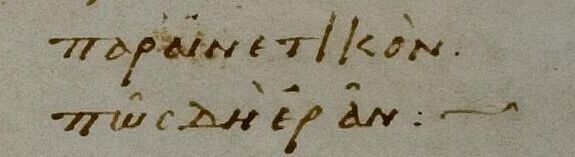 παραινετικὸν.
πῶς δὴ ἐρᾶν :~